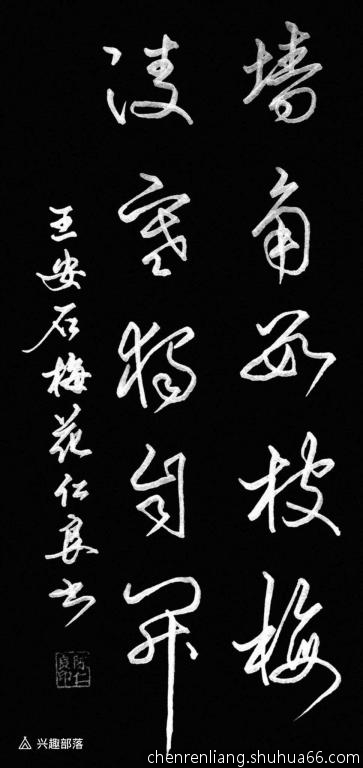 墙角数枝梅
凌寒独自开
王安石梅花仁良书
兴趣部落
chenrenliang.shuhua66.com